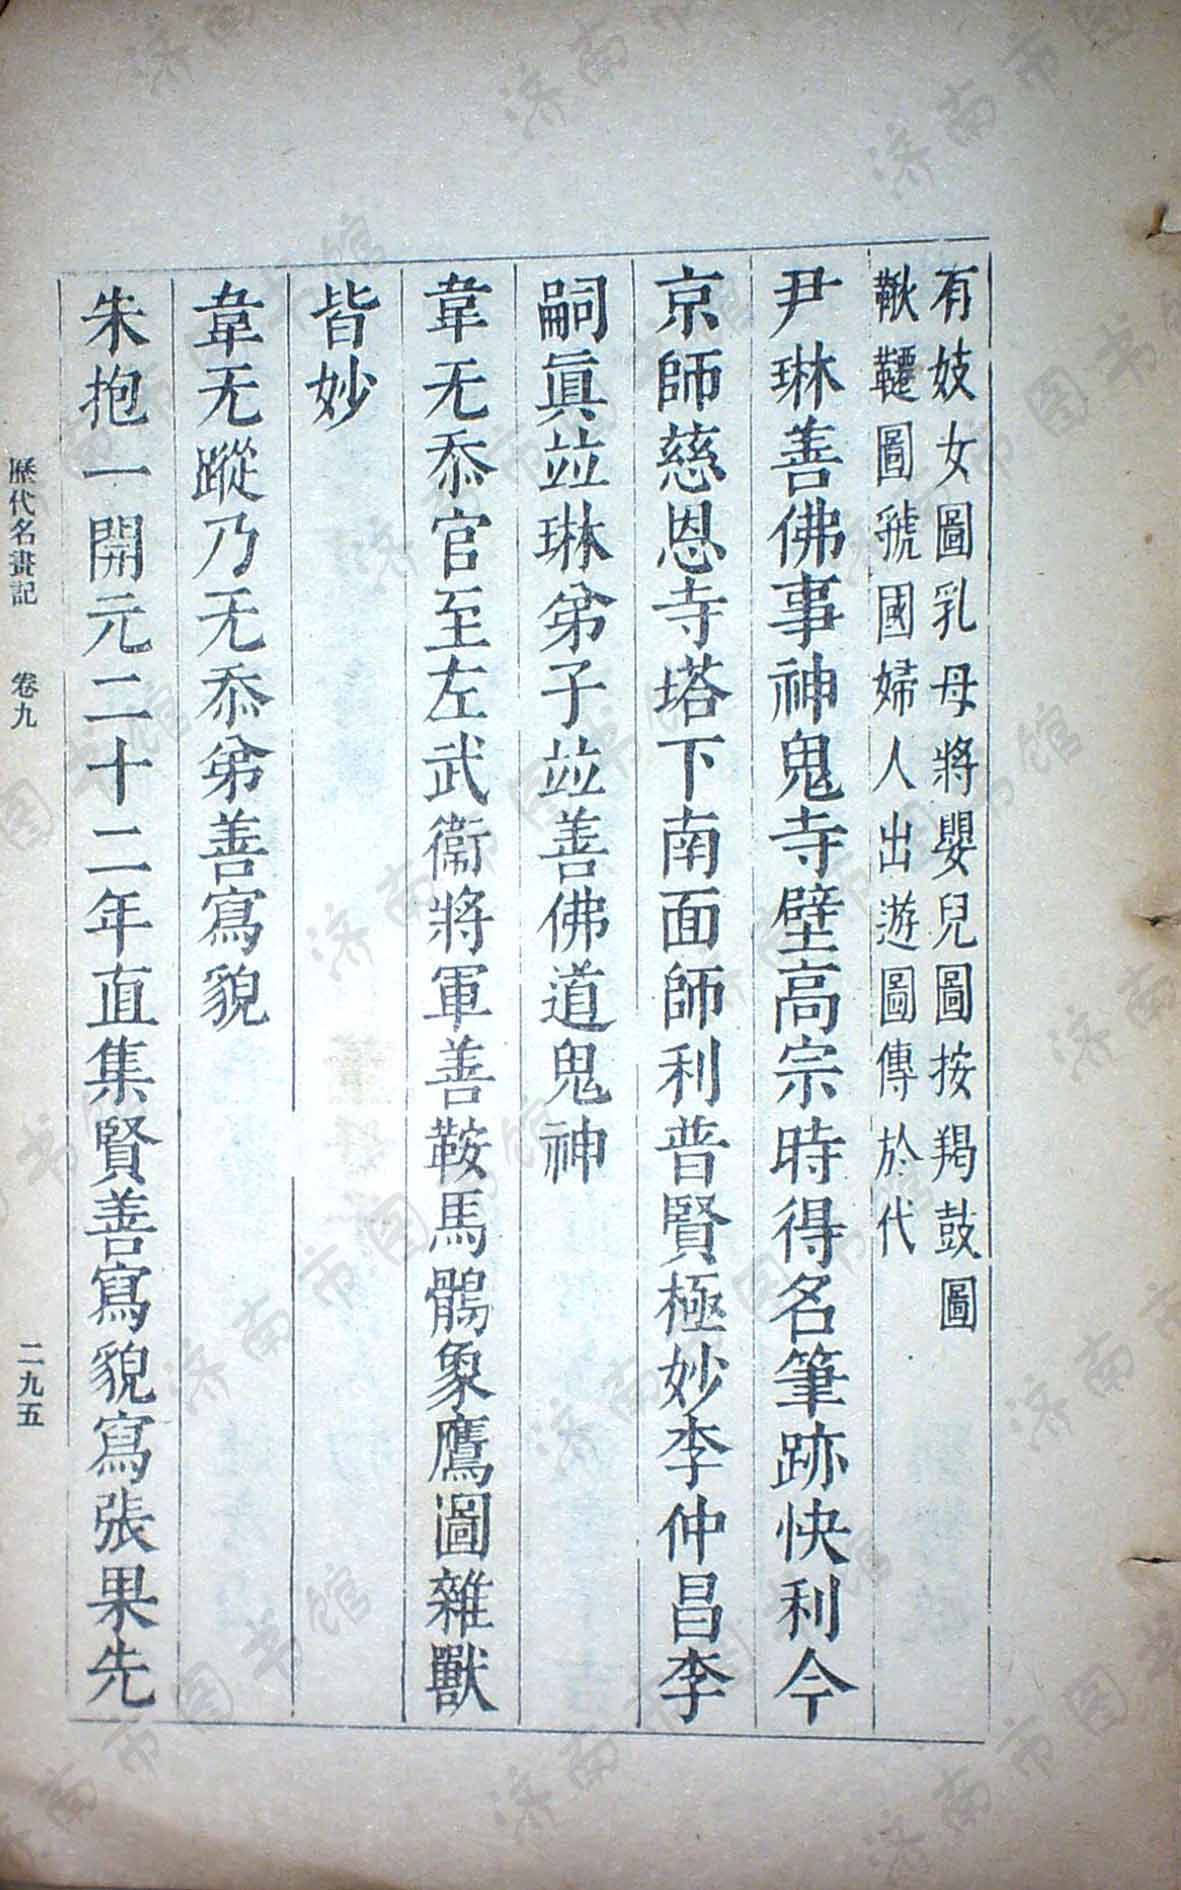 有妓女圖乳母將嬰兒圖按羯鼓圖
鞦韆圖虢國婦人出遊圖傳於代
尹琳善佛事神鬼寺壁高宗時得名筆跡快利今
京師慈恩寺塔下南面師利普賢極妙李仲昌李
嗣眞竝琳弟子竝善佛道鬼神
韋无忝官至左武衞將軍善鞍馬鶻象鷹圖雜獸
皆妙
韋无蹤乃无忝弟善寫貌
朱抱一開元二十二年直集賢善寫貌寫張果先
歷代名畫記 卷九 二九五
济南市图书馆